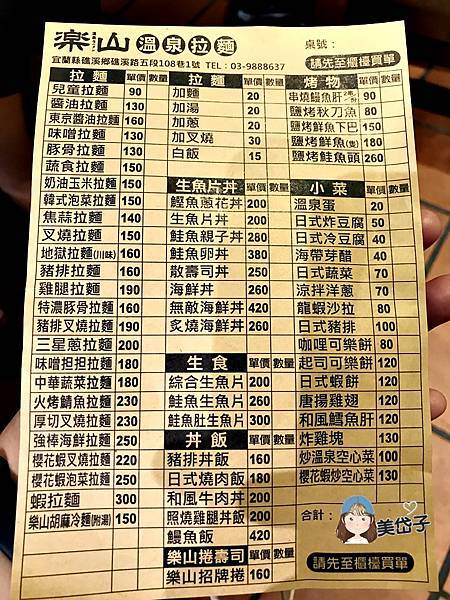 楽山 溫泉拉麵
宜蘭縣礁溪鄉礁溪路五段108巷1號 TEL：03-9888637
桌號：
請先至櫃檯買單
拉麵 單價 數量
兒童拉麵 90
醬油拉麵 130
東京醬油拉麵 160
味噌拉麵 130
豚骨拉麵 130
蔬食拉麵 150
奶油玉米拉麵 150
韓式泡菜拉麵 150
焦蒜拉麵 140
叉燒拉麵 150
地獄拉麵(川味) 160
豬排拉麵 160
雞腿拉麵 190
特濃豚骨拉麵 160
豬排叉燒拉麵 190
三星蔥拉麵 200
味噌担担拉麵 180
中華蔬菜拉麵 180
火烤鯖魚拉麵 230
厚切叉燒拉麵 230
強棒海鮮拉麵 250
櫻花蝦叉燒拉麵 220
櫻花蝦泡菜拉麵 250
蝦拉麵 300
樂山胡麻冷麵(附湯) 150
拉麵 單價 數量
加麵 20
加湯 20
加蔥 20
加叉燒 30
白飯 15
生魚片丼 單價 數量
鰹魚蔥花丼 200
生魚片丼 200
鮭魚親子丼 280
鮭魚卵丼 380
散壽司丼 250
海鮮丼 260
無敵海鮮丼 420
炙燒海鮮丼 260
生食 單價 數量
綜合生魚片 200
鮭魚生魚片 260
鮭魚肚生魚片 300
丼飯 單價 數量
豬排丼飯 160
日式燒肉飯 180
和風牛肉丼 200
照燒雞腿丼飯 200
鰻魚飯 420
樂山捲壽司 單價 數量
樂山招牌捲 160
烤物 單價 數量
串燒鰻魚肝 90
鹽烤秋刀魚 80
鹽烤鮮魚下巴 150
鹽烤鮮魚(隻) 180
鹽烤鮭魚頭 260
小菜 單價 數量
溫泉蛋 20
日式炸豆腐 50
日式冷豆腐 40
海帶芽醋 40
日式蔬菜 70
涼拌洋蔥 70
龍蝦沙拉 80
日式豬排 100
咖哩可樂餅 80
起司可樂餅 120
日式蝦餅 120
唐揚雞翅 120
和風鱈魚肝 120
炸雞塊 130
炒溫泉空心菜 100
櫻花蝦炒空心菜 130
合計：
美岱子
請先至櫃檯買單